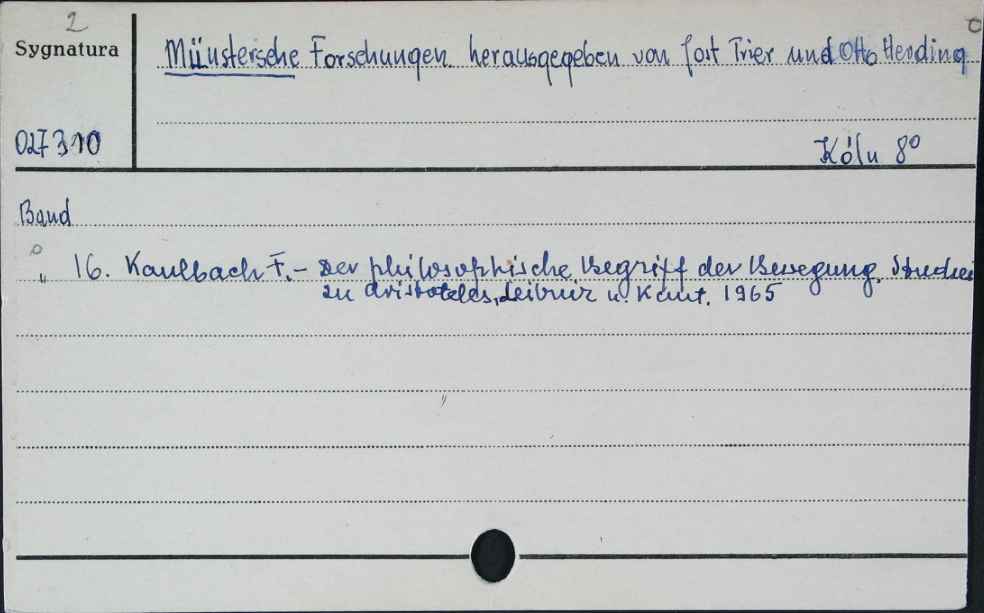 2
Sygnatura
Münstersche Forschungen herausgegeben von Jost Trier und Otto Herding
027310
Köln 8°
Band
" 16. Kaulbach F. - Der philosophische Begriff der Bewegung. Studien
zu Aristoteles, Leibniz u. Kant. 1965